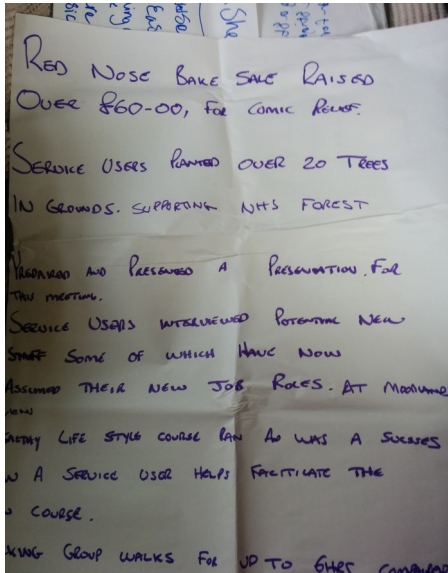 She
RED NOSE BAKE SALE RAISED
OVER £60-00, FOR COMIC RELIEF.
SERVICE USERS PLANTED OVER 20 TREES
IN GROUNDS. SUPPORTING NHS FOREST
PREPARED AND PRESENTED A PRESENTATION. FOR
THIS MEETING.
SERVICE USERS INTERVIEWED POTENTIAL NEW
STAFF SOME OF WHICH HAVE NOW
ASSUMED THEIR NEW JOB ROLES. AT
LIFE STYLE COURSE RAN AS WAS A SUCSSES
A SERVICE USER HELPS FACITICATE THE
COURSE.
KING GROUP WALKS FOR UP TO 6HRS